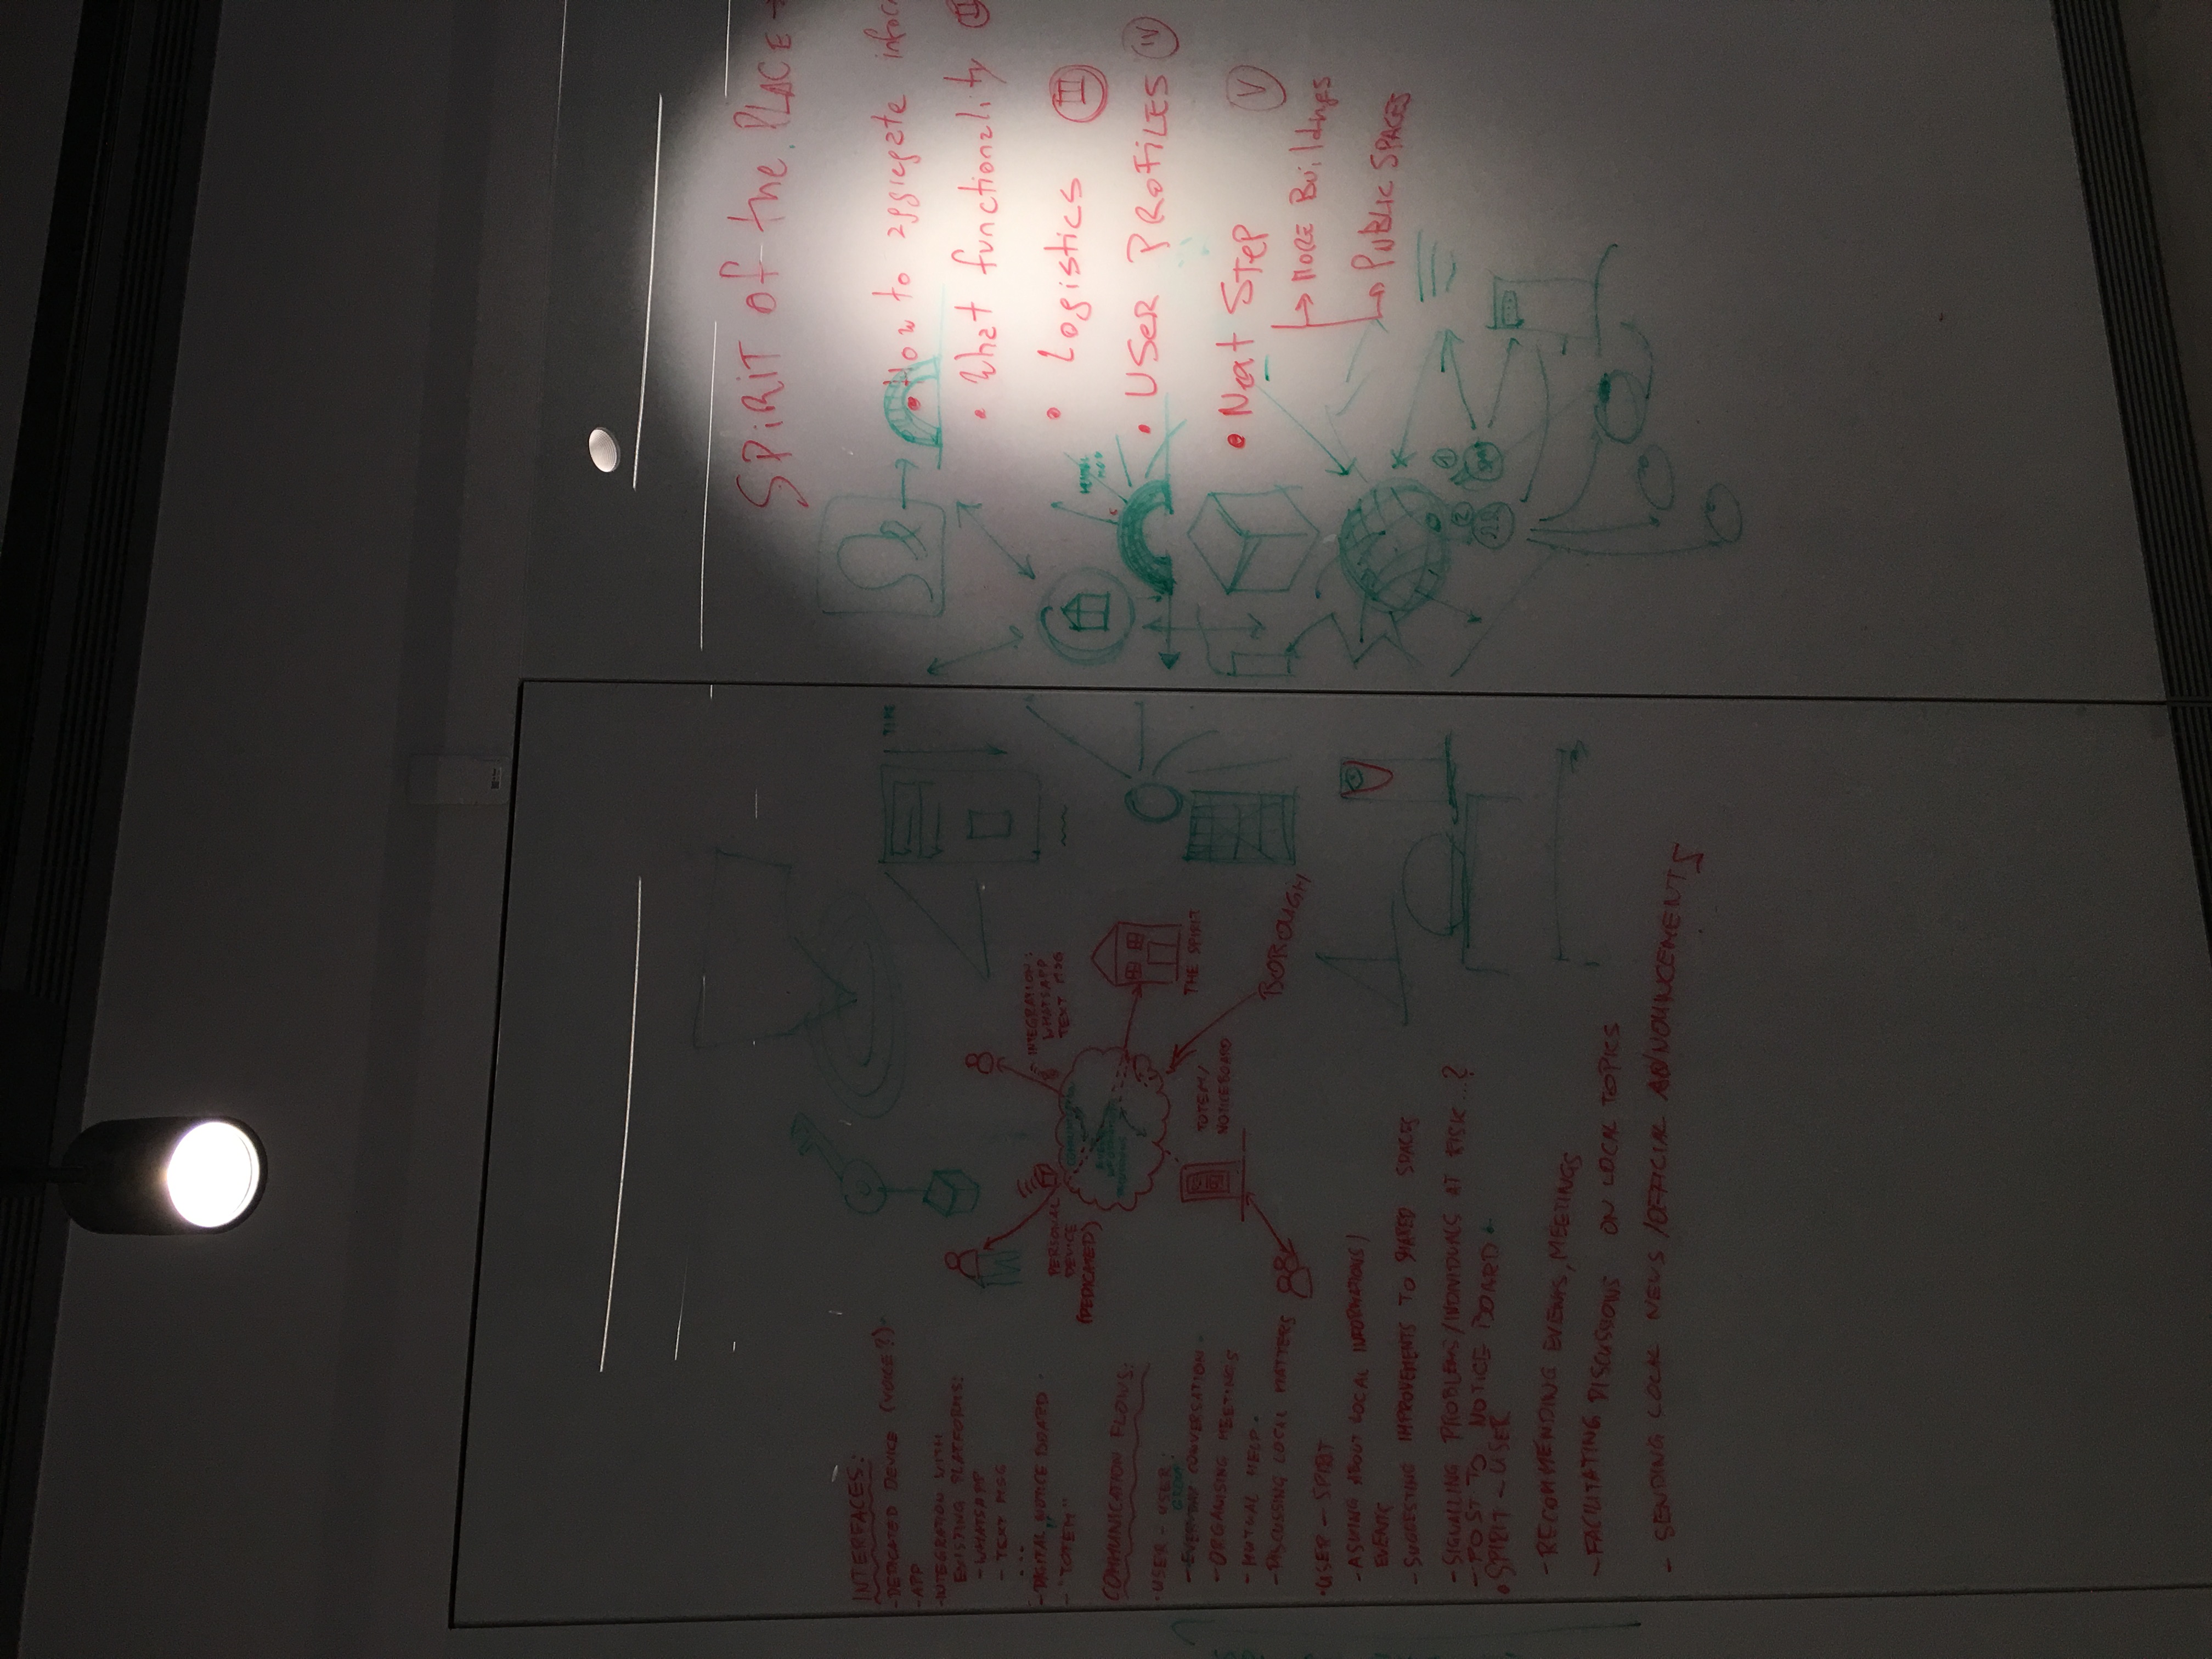 INTERFACES:
- DEDICATED DEVICE (VOICE?)
- APP
- INTEGRATION WITH
EXISTING PLATFORMS:
- WHATSAPP
- TEXT MSG
...
- DIGITAL NOTICE BOARD
- "TOTEM"
COMMUNICATION FLOWS:
• USER - USER:
GROUP
- EVERYDAY CONVERSATION
- ORGANISING MEETINGS
- MUTUAL HELP
- DISCUSSING LOCAL MATTERS
• USER - SPIRIT
- ASKING ABOUT LOCAL INFORMATIONS/
EVENTS
- SUGGESTING IMPROVEMENTS TO SHARED SPACES
- SIGNALLING PROBLEMS/INDIVIDUALS AT RISK...?
- POST TO NOTICE BOARD
• SPIRIT - USER
- RECOMMENDING EVENTS, MEETINGS
- FACILITATING DISCUSSIONS ON LOCAL TOPICS
- SENDING LOCAL NEWS /OFFICIAL ANNOUNCEMENTS
PERSONAL
DEVICE
(DEDICATED)
INTEGRATION:
WHATSAPP
TEXT MSG
THE SPIRIT
TOTEM/
NOTICEBOARD
BOROUGH
TIME
SPIRIT of the PLACE
• How to aggregate
• What functionality II
• Logistics III
• USER PROFILES IV
• Next STEP V
→ MORE Buildings
→ PUBLIC SPACES
2
1